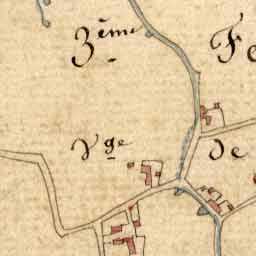 3ème Fe
Vge de